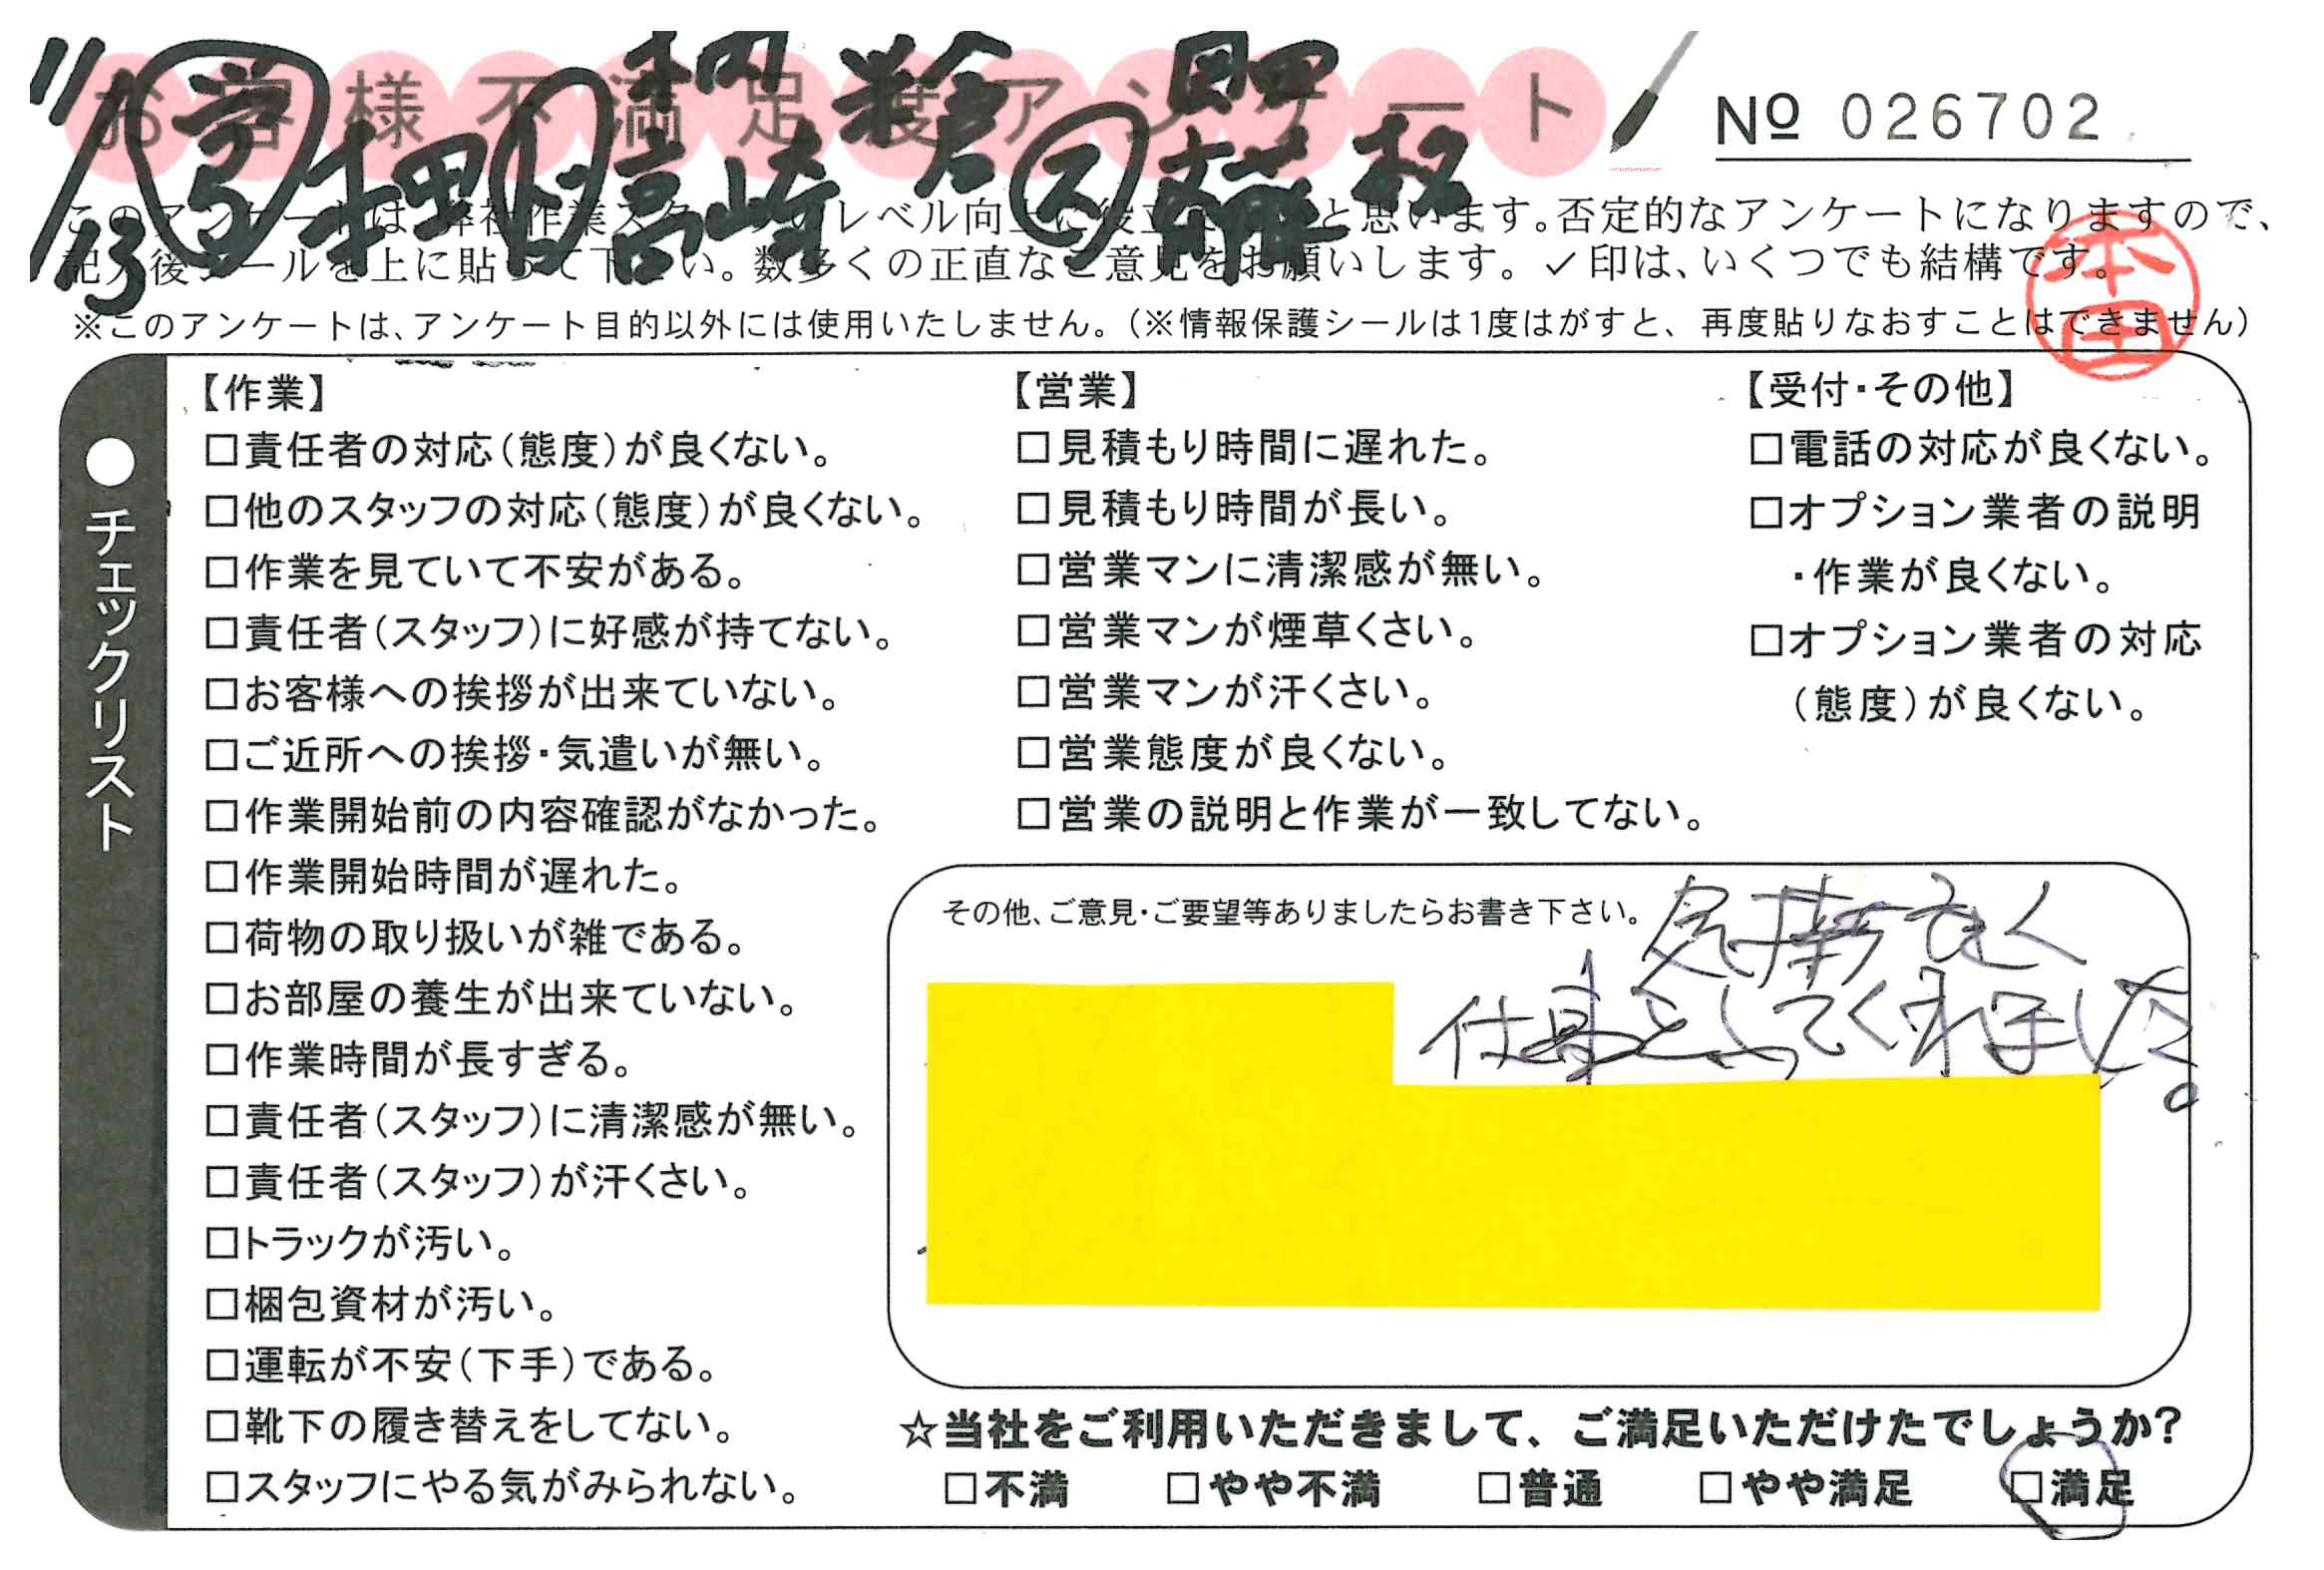 お客様不満足度アンケート
No 026702
11/13 営 押田 高崎
このアンケートは、弊社作業スタッフのレベル向上に役立てたいと思います。否定的なアンケートになりますので、
記入後シールを上に貼って下さい。数多くの正直なご意見をお願いします。✓印は、いくつでも結構です。
※このアンケートは、アンケート目的以外には使用いたしません。(※情報保護シールは1度はがすと、再度貼りなおすことはできません)
本田
●チェックリスト
【作業】
□責任者の対応(態度)が良くない。
□他のスタッフの対応(態度)が良くない。
□作業を見ていて不安がある。
□責任者(スタッフ)に好感が持てない。
□お客様への挨拶が出来ていない。
□ご近所への挨拶・気遣いが無い。
□作業開始前の内容確認がなかった。
□作業開始時間が遅れた。
□荷物の取り扱いが雑である。
□お部屋の養生が出来ていない。
□作業時間が長すぎる。
□責任者(スタッフ)に清潔感が無い。
□責任者(スタッフ)が汗くさい。
□トラックが汚い。
□梱包資材が汚い。
□運転が不安(下手)である。
□靴下の履き替えをしてない。
□スタッフにやる気がみられない。
【営業】
□見積もり時間に遅れた。
□見積もり時間が長い。
□営業マンに清潔感が無い。
□営業マンが煙草くさい。
□営業マンが汗くさい。
□営業態度が良くない。
□営業の説明と作業が一致してない。
【受付・その他】
□電話の対応が良くない。
□オプション業者の説明
・作業が良くない。
□オプション業者の対応
(態度)が良くない。
その他、ご意見・ご要望等ありましたらお書き下さい。
気持ちよく
仕事をしてくれました。
☆当社をご利用いただきまして、ご満足いただけたでしょうか?
□不満 □やや不満 □普通 □やや満足 □満足